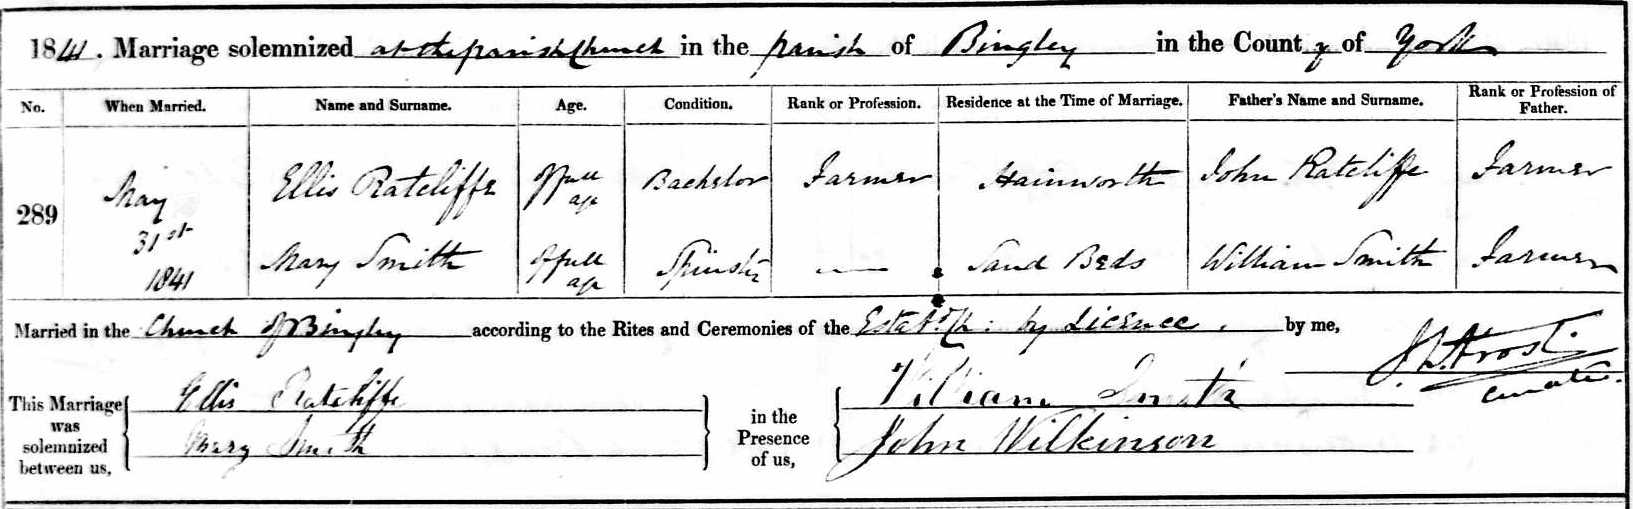 1841. Marriage solemnized at the parish Church in the parish of Bingley in the County of York
No. When Married. Name and Surname. Age. Condition. Rank or Profession. Residence at the Time of Marriage. Father's Name and Surname. Rank or Profession of Father.
289 May 31st 1841 Ellis Ratcliffe of full age Bachelor Farmer Hainworth John Ratcliffe Farmer
Mary Smith of full age Spinster — Sand Beds William Smith Farmer
Married in the Church of Bingley according to the Rites and Ceremonies of the Estabd. Ch: by Licence. by me,
Curate.
This Marriage was solemnized between us, Ellis Ratcliffe Mary Smith in the Presence of us, William Smith John Wilkinson